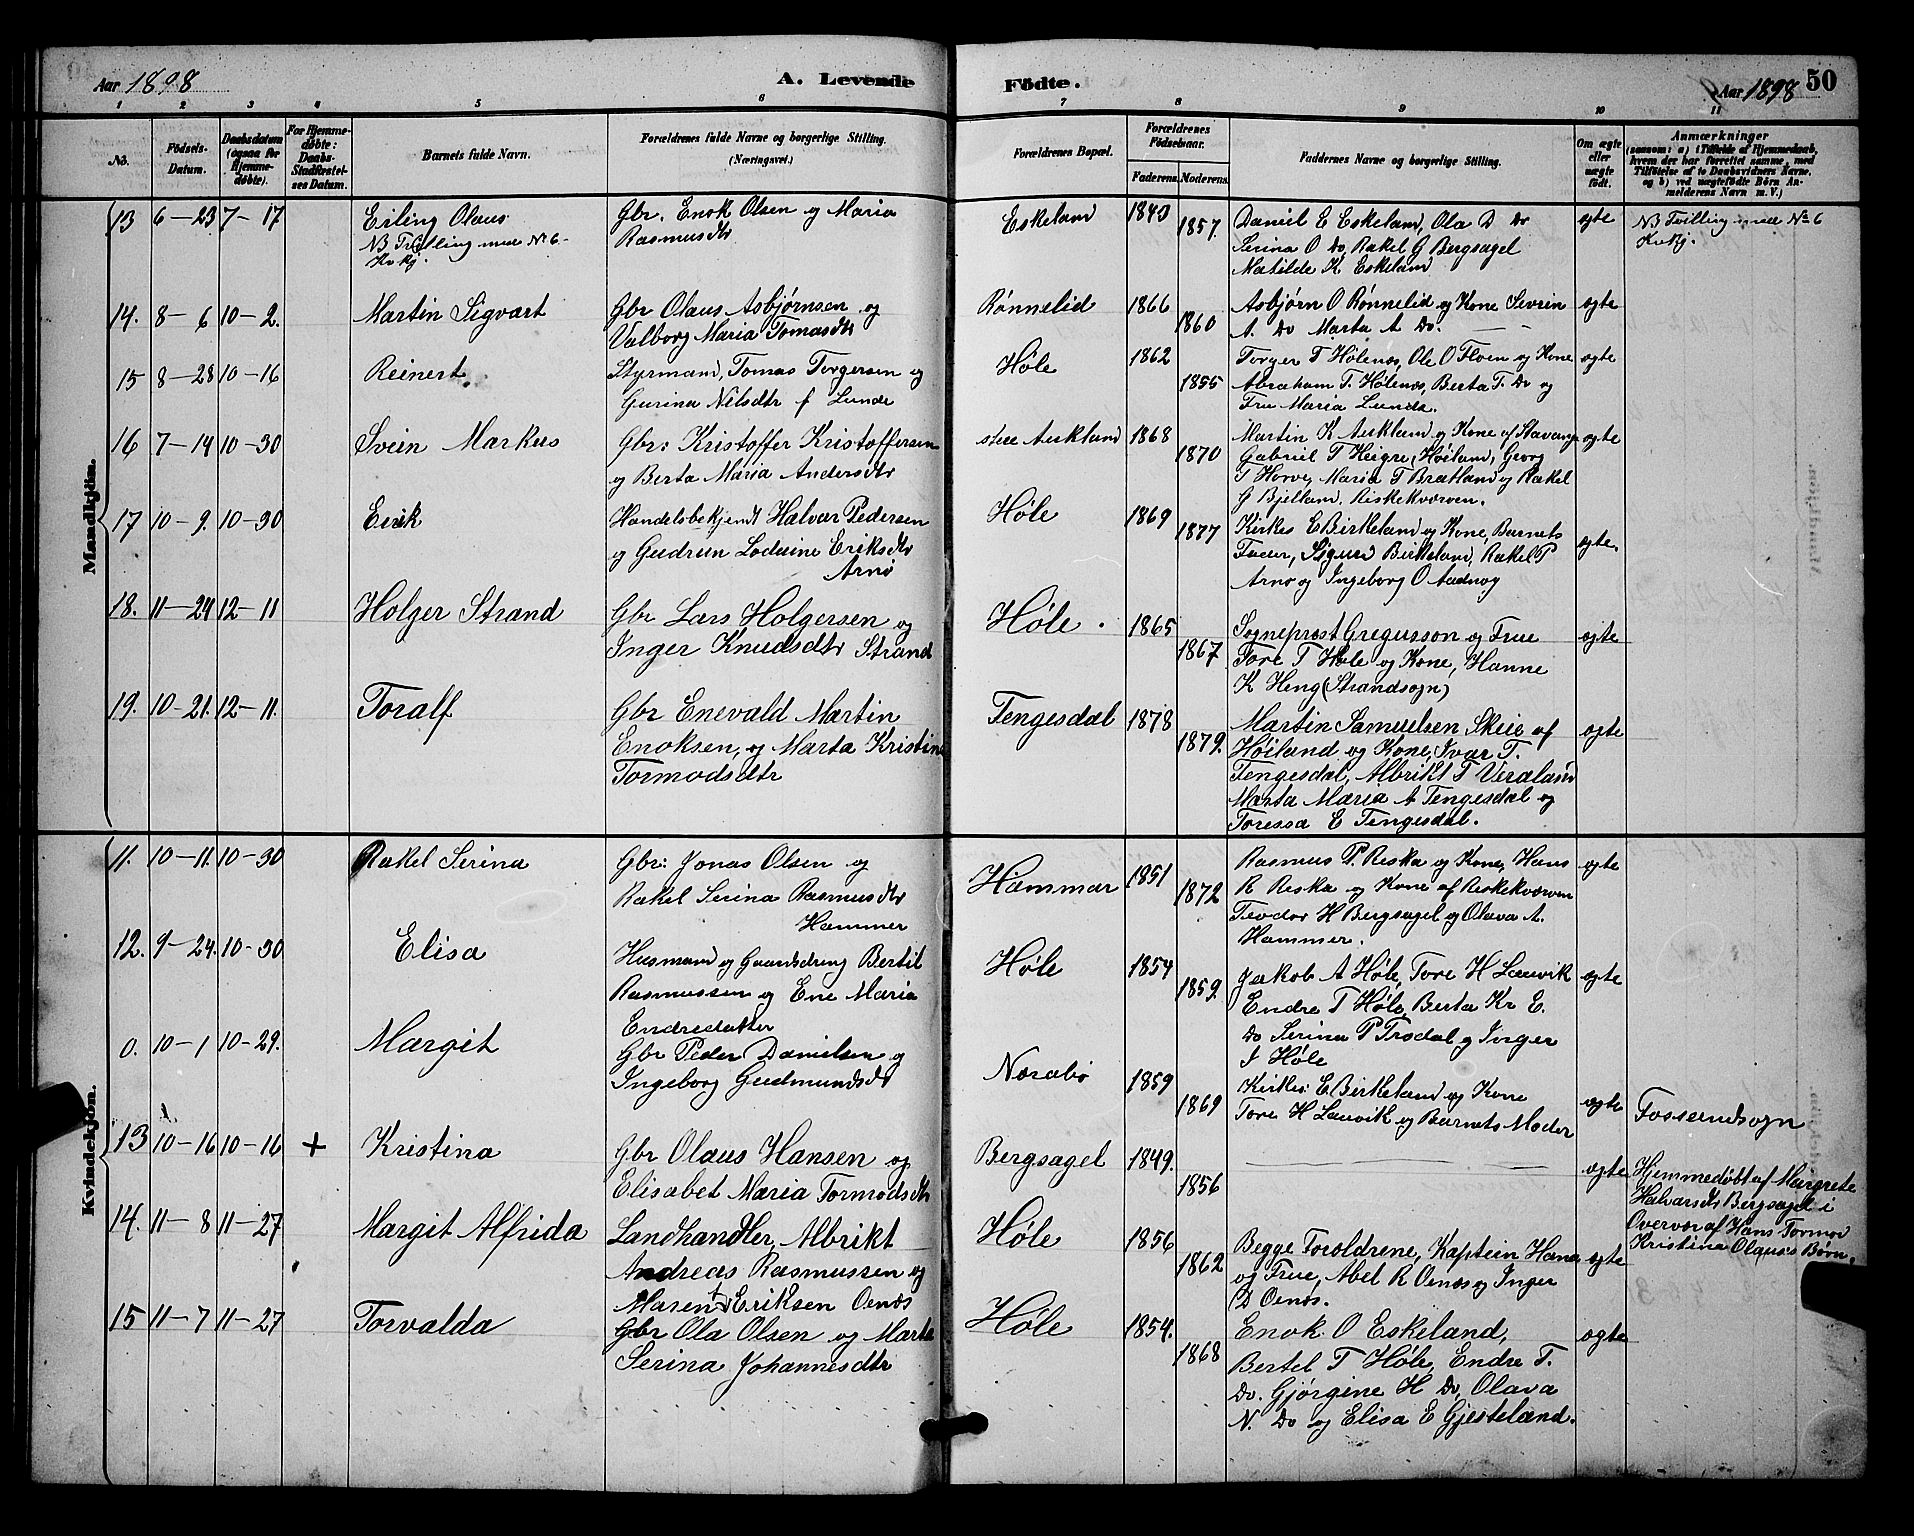 Aar 1898
A. Levende
Födte.
Aar 1898
50
1 2 3 4 5 6 7 8 9 10 11
No. Födsels-Datum. Daabsdatum (ogsaa for Hjemmedöbte). For Hjemmedöbte: Daabs-Stadfæstelses Datum. Barnets fulde Navn. Forældrenes fulde Navne og borgerlige Stilling. (Næringsvei.)
Forældrenes Bopæl. Forældrenes Födselsaar. Faderens. Moderens. Faddernes Navne og borgerlige Stilling. Om ægte eller uægte födt.
Anmærkninger
(saasom: a) i Tilfælde af Hjemmedaab, hvem der har forrettet samme, med Tilföielse af to Daabsvidners Navne, og b) ved uægtefödte Börn Anmelderens Navn m. V.)
Mandkjön.
13 6-23 7-17 Erling Olaus
NB Tvilling med No 6
Kvkj.
Gbr. Enok Olsen og Maria
Rasmusdtr
Eskeland 1840 1857
Daniel E Eskeland, Ola D Do
Serina O Do, Rakel G Bergsagel
Matilde K Eskeland
ægte
NB Tvilling med No 6
Kvkj.
14. 8-6 10-2. Martin Sigvart
Gbr Olaus Asbjørnsen og
Valborg Maria Tomasdtr
Rønnelid 1866 1860
Asbjørn O Rønnelid og Kone Sevrin
A. Do Marta A Do.
ægte
15 8-28 10-16 Reinert
Styrmand, Tomas Torgersen og
Gurina Nilsdtr f Lunde
Høle 1862 1855
Torger T Hølenæs, Ole O Floen og Kone
Abraham T. Hølenæs, Berta T. Do og
Fru Maria Lunde.
ægte
16 7-14 10-30 Svein Markus
Gbr: Kristoffer Kristoffersen
og Berta Maria Andersdtr
Aukland 1868 1870
Martin K Aukland og Kone af Stavang
Gabriel T Heigre, Høiland, Georg
T Horve, Maria T Bratland og Rakel
G Bjelland, Riskekværven.
ægte
17 10-9. 10-30 Erik
Handelsbetjendt Halvar Pedersen
og Gudrun Lodvine Eriksdtr
Arnø
Høle 1869 1877
Kirkes E Birkeland og Kone, Barnets
Fader, Sigurd Birkeland, Rakel P
Arnø og Ingeborg O Aadnøy
ægte.
18. 11-24 12-11 Holger Strand
Gbr Lars Holgersen og
Inger Knudsdtr Strand
Høle 1865 1867
Sogneprest Gregusson og Frue
Tore T Høle og Kone, Hanne
K Heng (Strandsogn)
ægte
19. 10-21. 12-11. Toralf
Gbr Enevald Martin
Enoksen, og Marta Kristine
Tormodsdtr
Tengesdal 1878 1879.
Martin Samuelsen Skeie af
Høiland og Kone, Ivar T.
Tengesdal, Albrikt T Veraland
Marta Maria A Tengesdal og
Toressa E Tengesdal.
ægte
Kvindekjön.
11. 10-11. 10-30 Rakel Serina
Gbr: Jonas Olsen og
Rakel Serina Rasmusdtr
Hammer
Hammar 1851 1872
Rasmus P. Riska og Kone, Hans
R Riska og Kone af Riskekværven
Teodor H Bergsagel og Olava A.
Hammer.
ægte
12. 9-24. 10-30 Elisa
Husmand og Gaardsdreng Bertil
Rasmussen og Ene Maria
Endredatter
Høle 1854 1859.
Jakob A Høle, Tore H Lauvik
Endre T Høle, Berta Kr E.
Do Serina P Trodal og Inger
I Høle
ægte
0. 10-1 10-29. Margit
Gbr Peder Danielsen og
Ingeborg Gudmundsdtr
Norabø 1859 1869
Kirkes: E Birkeland og Kone
Tore H Lauvik og Barnets Moder
ægte
Fossandsogn
13 10-16 10-16 + Kristina
Gbr Olaus Hansen og
Elisabet Maria Tormodsdtr
Bergsagel 1849. 1856
ægte
Hjemmedøbt af Margrete
Halvarsdtr Bergsagel i
Overvær af Hans Tormod
Kristina Olaus's Børn.
14. 11-8 11-27 Margit Alfrida
Landhandler, Albrikt
Andreas Rasmussen og
Maren Eriksen Oenæs
Høle 1856 1862
Begge Foreldrene, Kaptein Hana
og Frue, Abel R Oenæs og Inger
D Oenæs.
ægte
15 11-7 11-27 Torvalda
Gbr Ola Olsen og Marta
Serina Johannesdtr
Høle 1854. 1868
Enok O Eskeland,
Bertel T Høle, Endre T.
Do. Gjørgine H Do, Olava
N. Do og Elisa E Gjesteland.
ægte